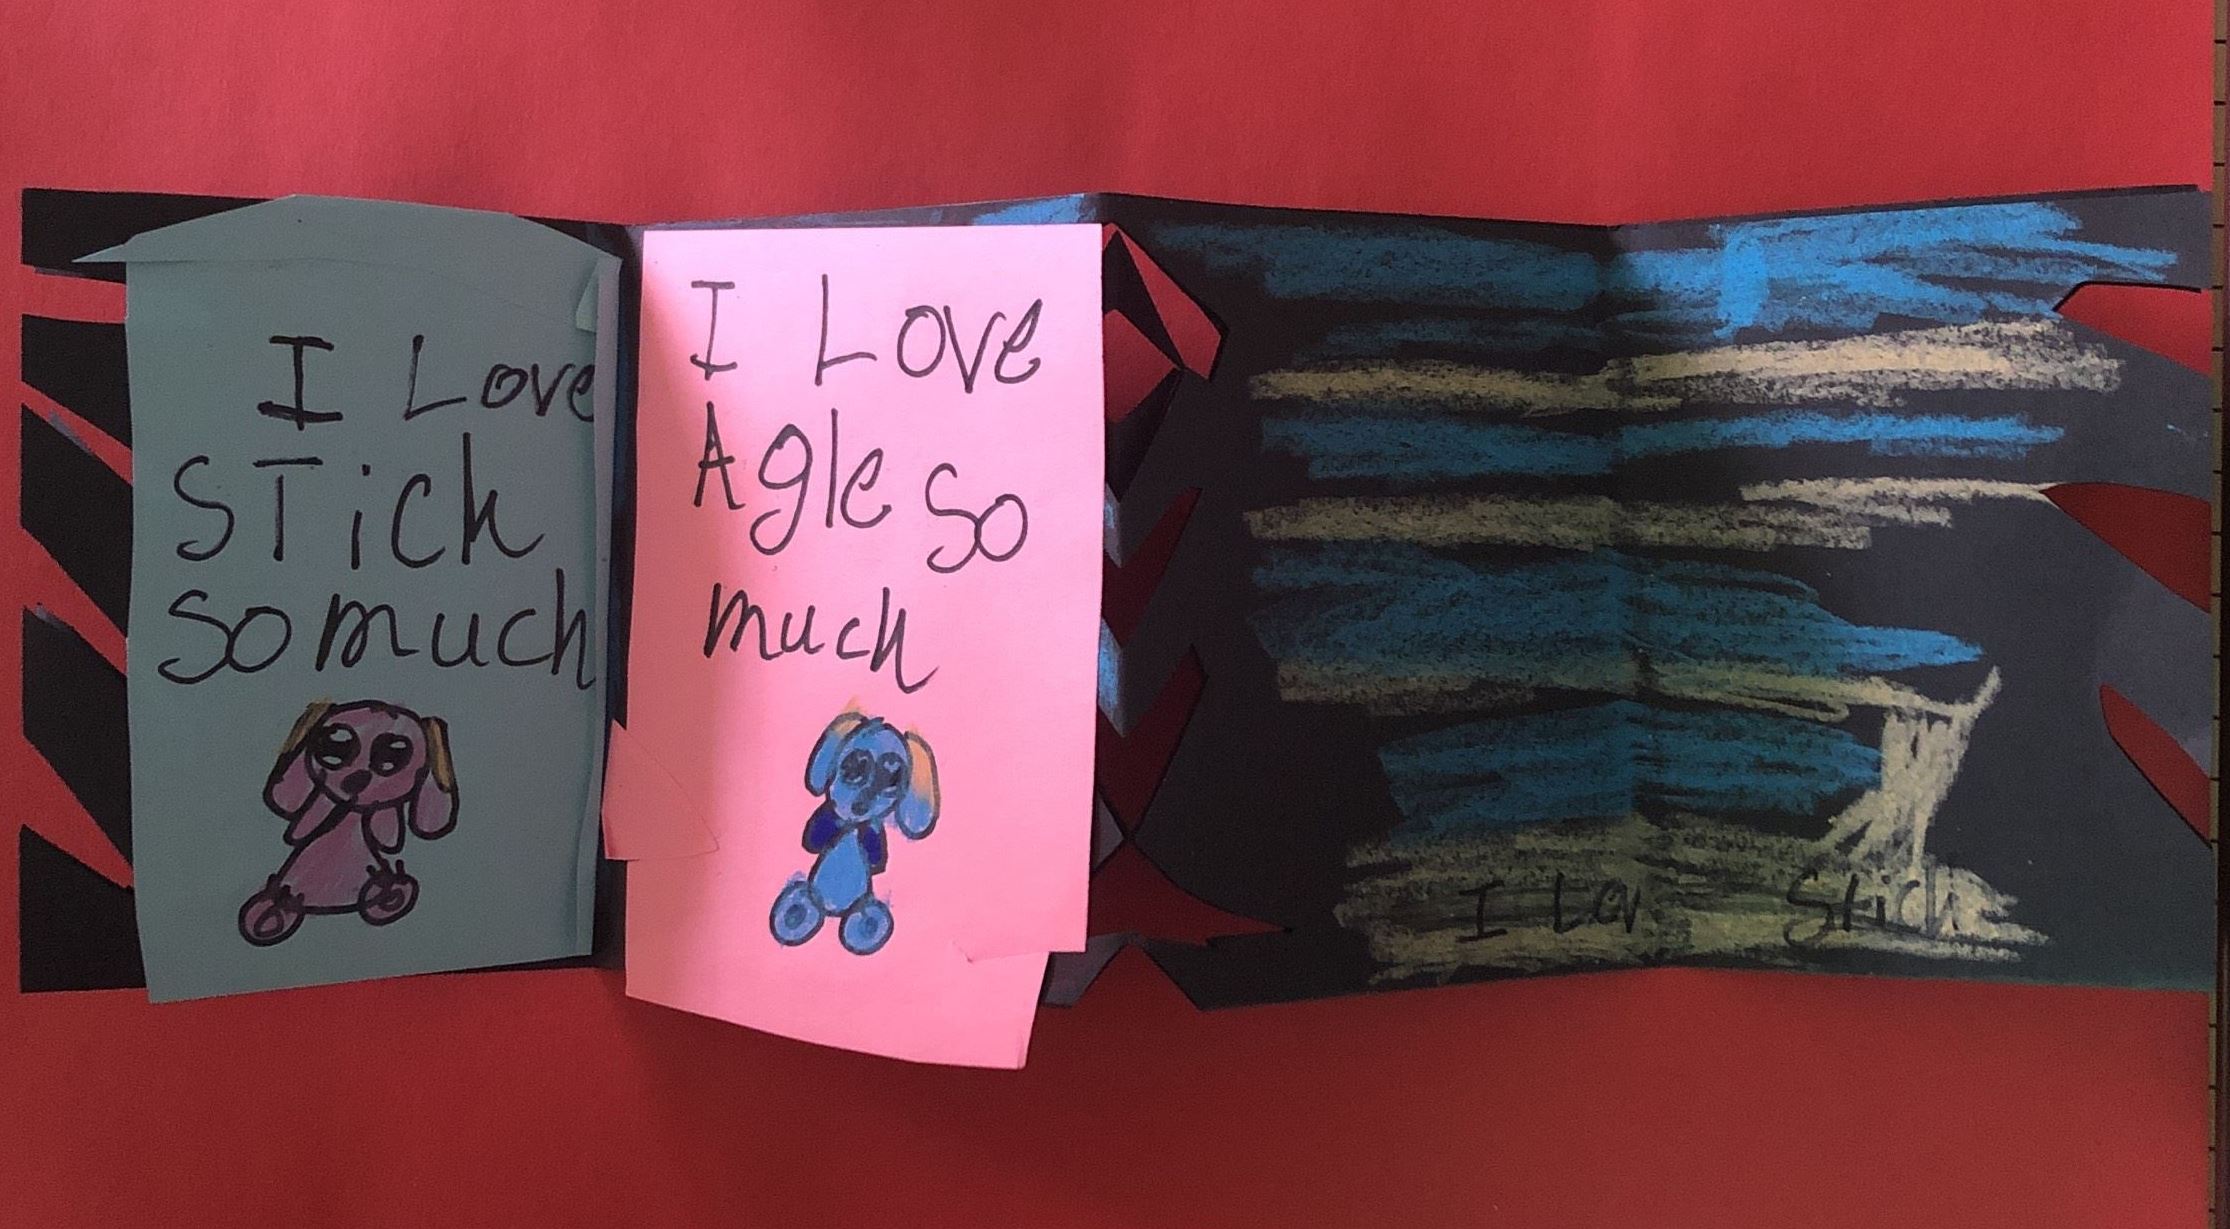 I Love
STick
So much
I Love
Agle so
much
I Lov Stich